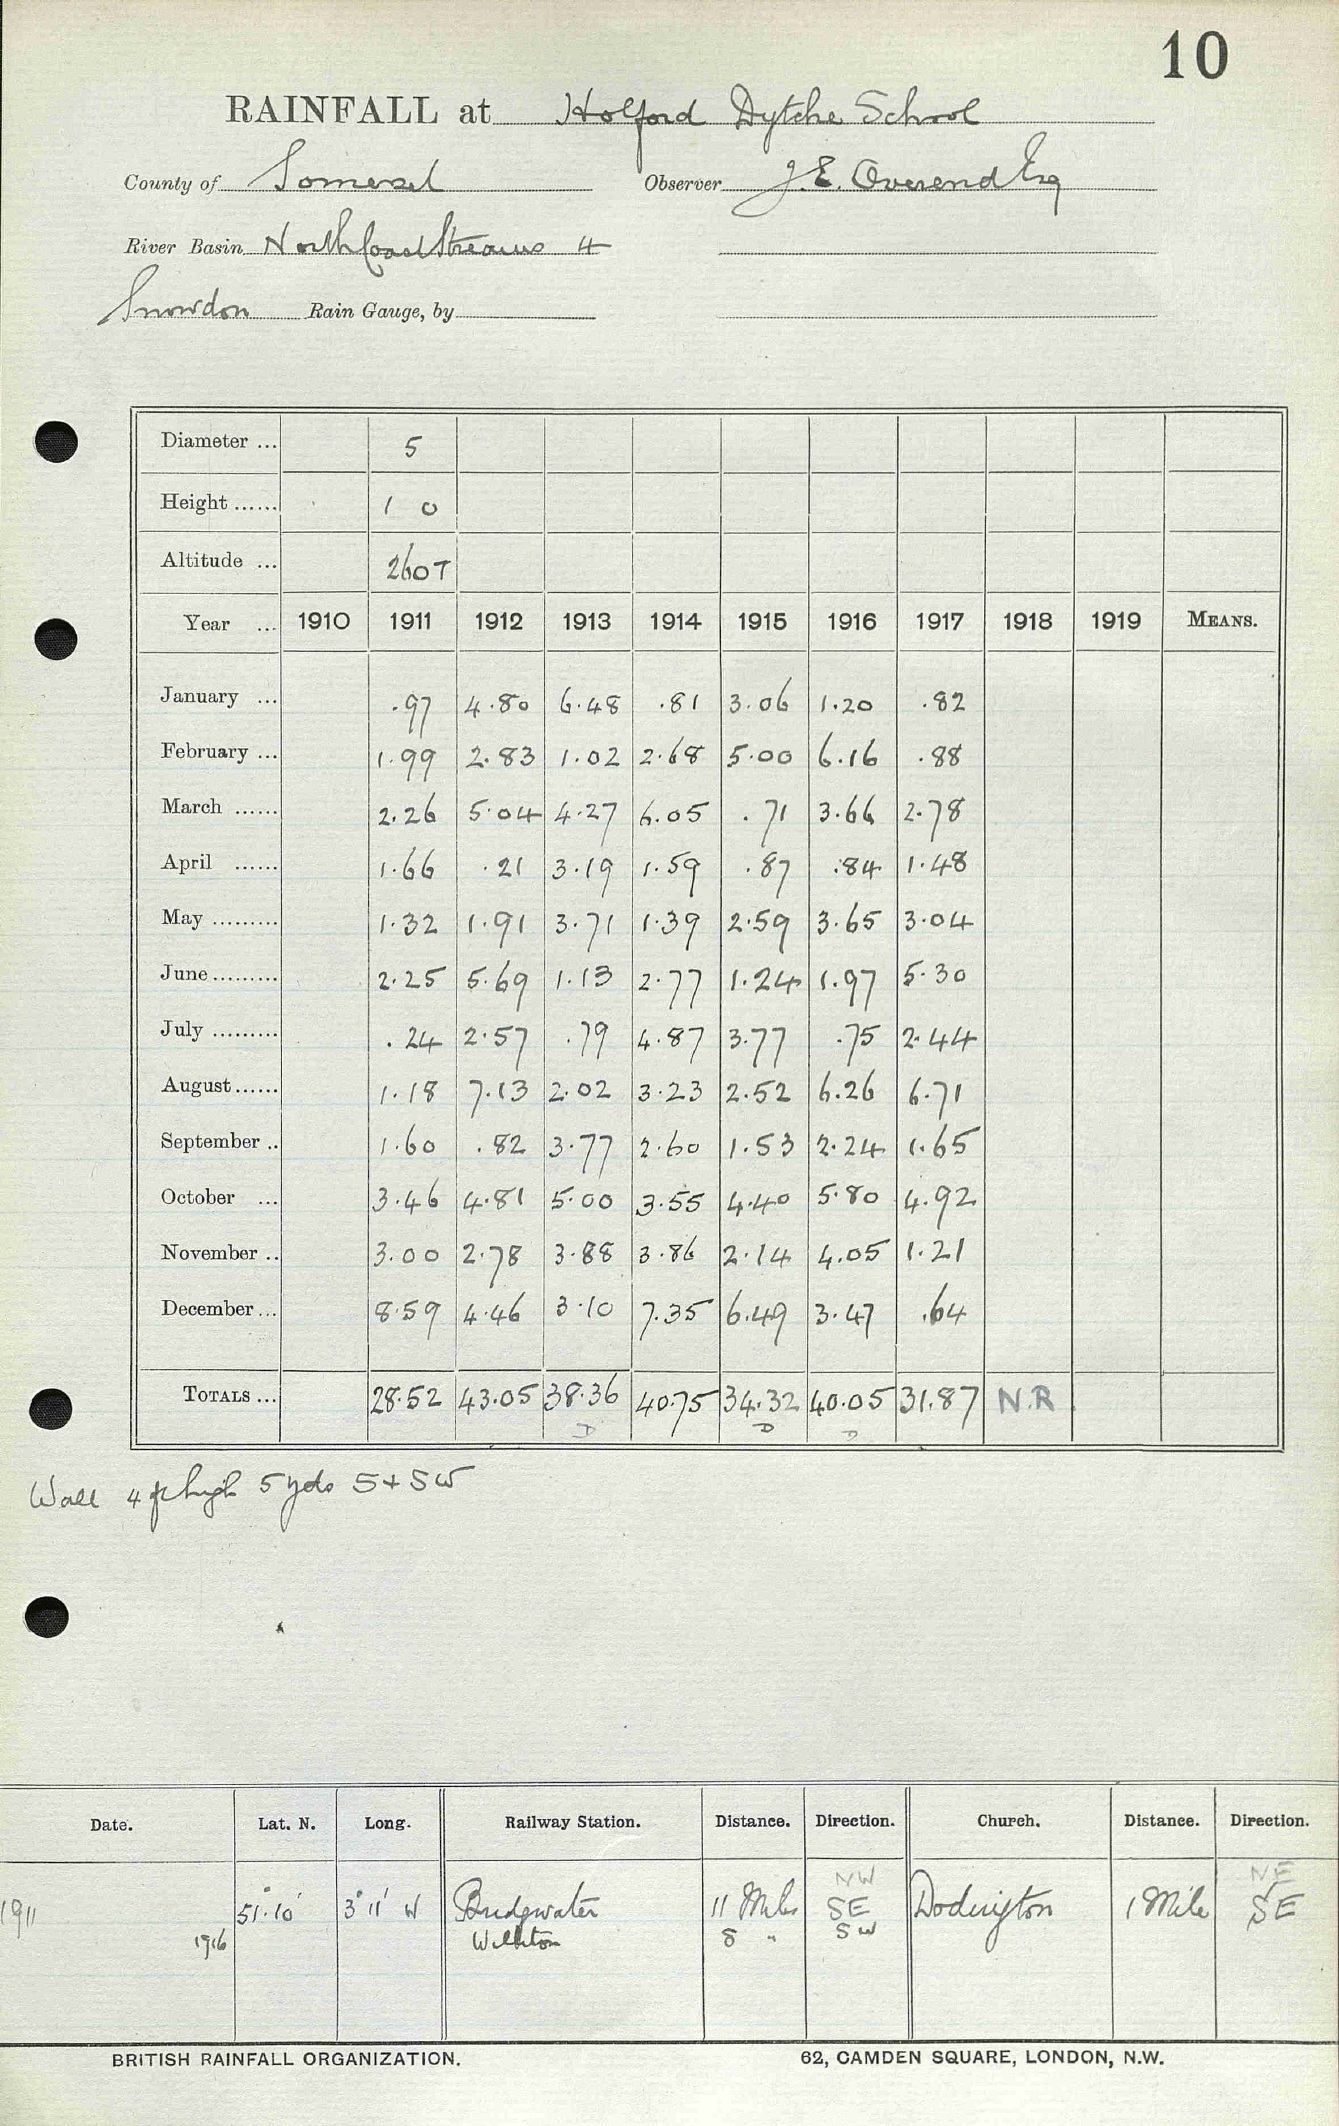 10
RAINFALL at Holford Dytche School
County of Somerset Observer J. E. Overend Esq
River Basin North Coast Streams 4
Snowdon Rain Gauge, by
Diameter ... 5
Height ...... 1 0
Altitude ... 260T
Year ... 1910 1911 1912 1913 1914 1915 1916 1917 1918 1919 MEANS.
January ... .97 4.80 6.48 .81 3.06 1.20 .82
February ... 1.99 2.83 1.02 2.68 5.00 6.16 .88
March ...... 2.26 5.04 4.27 6.05 .71 3.66 2.78
April ...... 1.66 .21 3.19 1.59 .87 .84 1.48
May ......... 1.32 1.91 3.71 1.39 2.59 3.65 3.04
June ......... 2.25 5.69 1.13 2.77 1.24 1.97 5.30
July ......... .24 2.57 .79 4.87 3.77 .75 2.44
August ...... 1.18 7.13 2.02 3.23 2.52 6.26 6.71
September .. 1.60 .82 3.77 2.60 1.53 2.24 1.65
October ... 3.46 4.81 5.00 3.55 4.40 5.80 4.92
November .. 3.00 2.78 3.88 3.86 2.14 4.05 1.21
December ... 8.59 4.46 3.10 7.35 6.49 3.47 .64
TOTALS ... 28.52 43.05 38.36 40.75 34.32 40.05 31.87 N.R
D D D
Wall 4 ft high 5 yds S + SW
Date. Lat. N. Long. Railway Station. Distance. Direction. Church. Distance. Direction.
NW NE
1911 51° 10' 3° 11' W Bridgwater 11 Miles SE Dodington 1 Mile SE
1916 Williton 8 " SW
BRITISH RAINFALL ORGANIZATION. 62, CAMDEN SQUARE, LONDON, N.W.